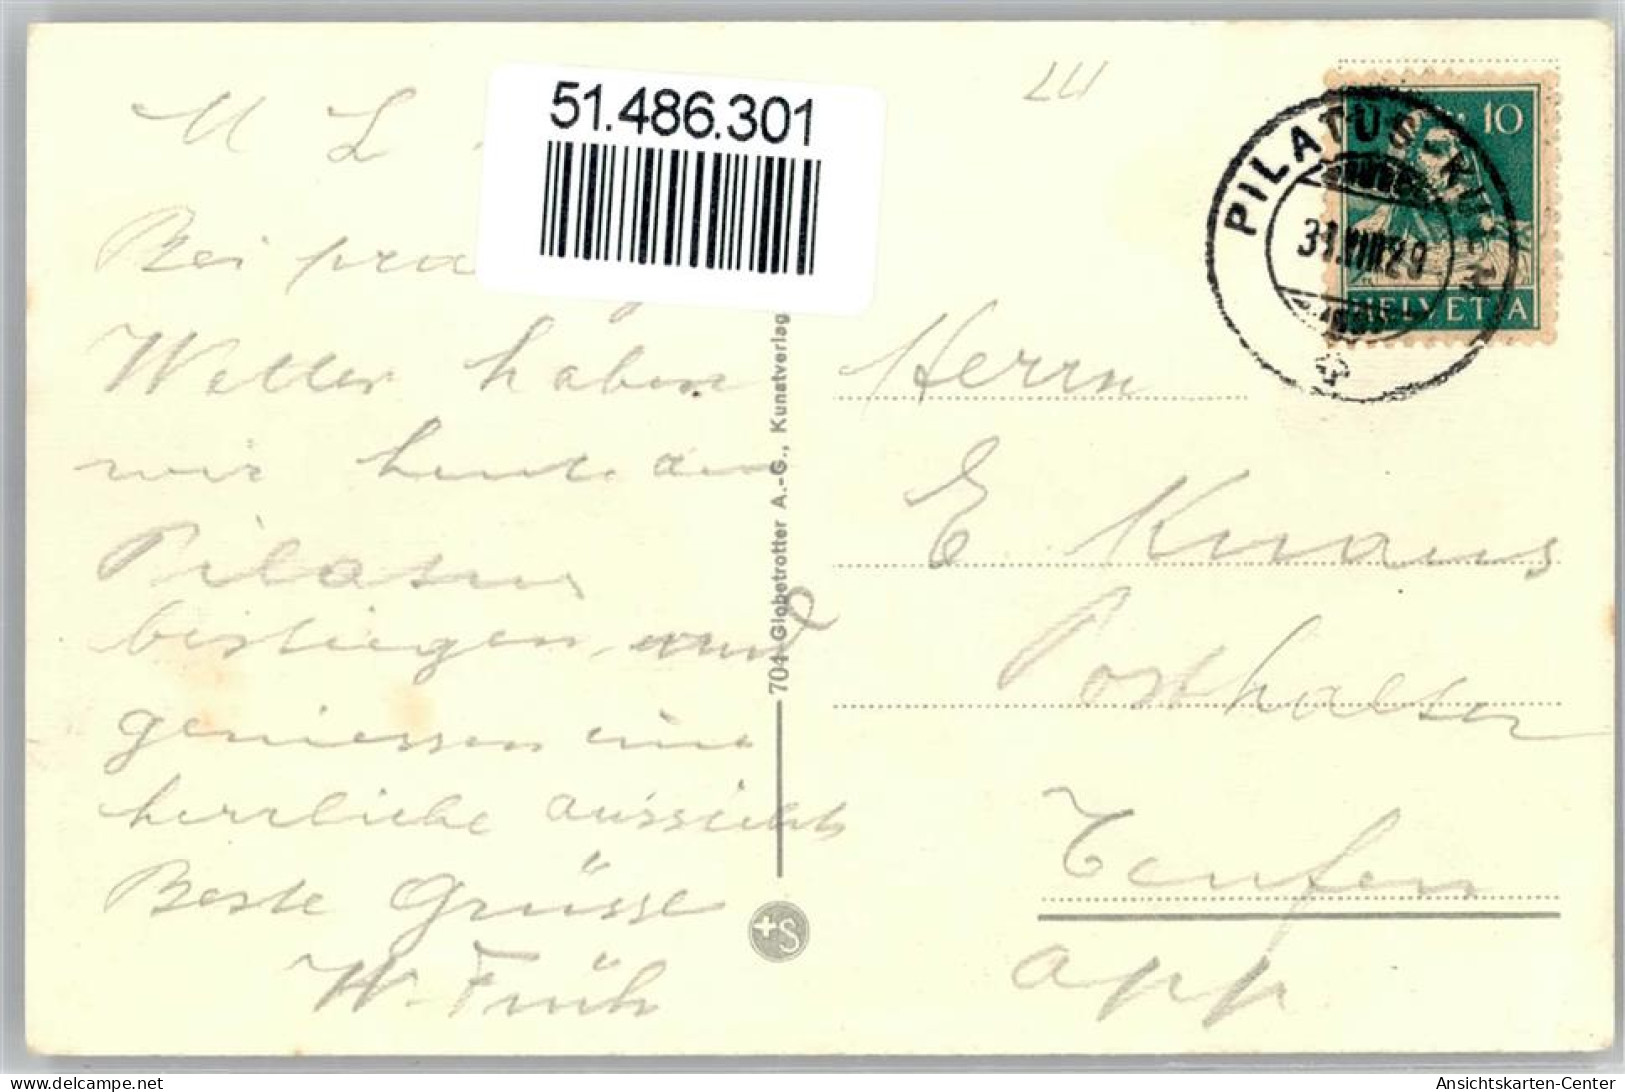 51.486.301
M L
Bei pra
Wetter haben
wir heute den
Pilatus
bestiegen und
geniessen eine
herrliche aussicht
Beste Grüsse
W. Früh
701 Globetrotter A.-G., Kunstverlag
+S
10
HELVETIA
PILATUS-KULM
31.VIII.29
Herrn
E Knaus
Posthalter
Teufen
app
Ansichtskarten-Center